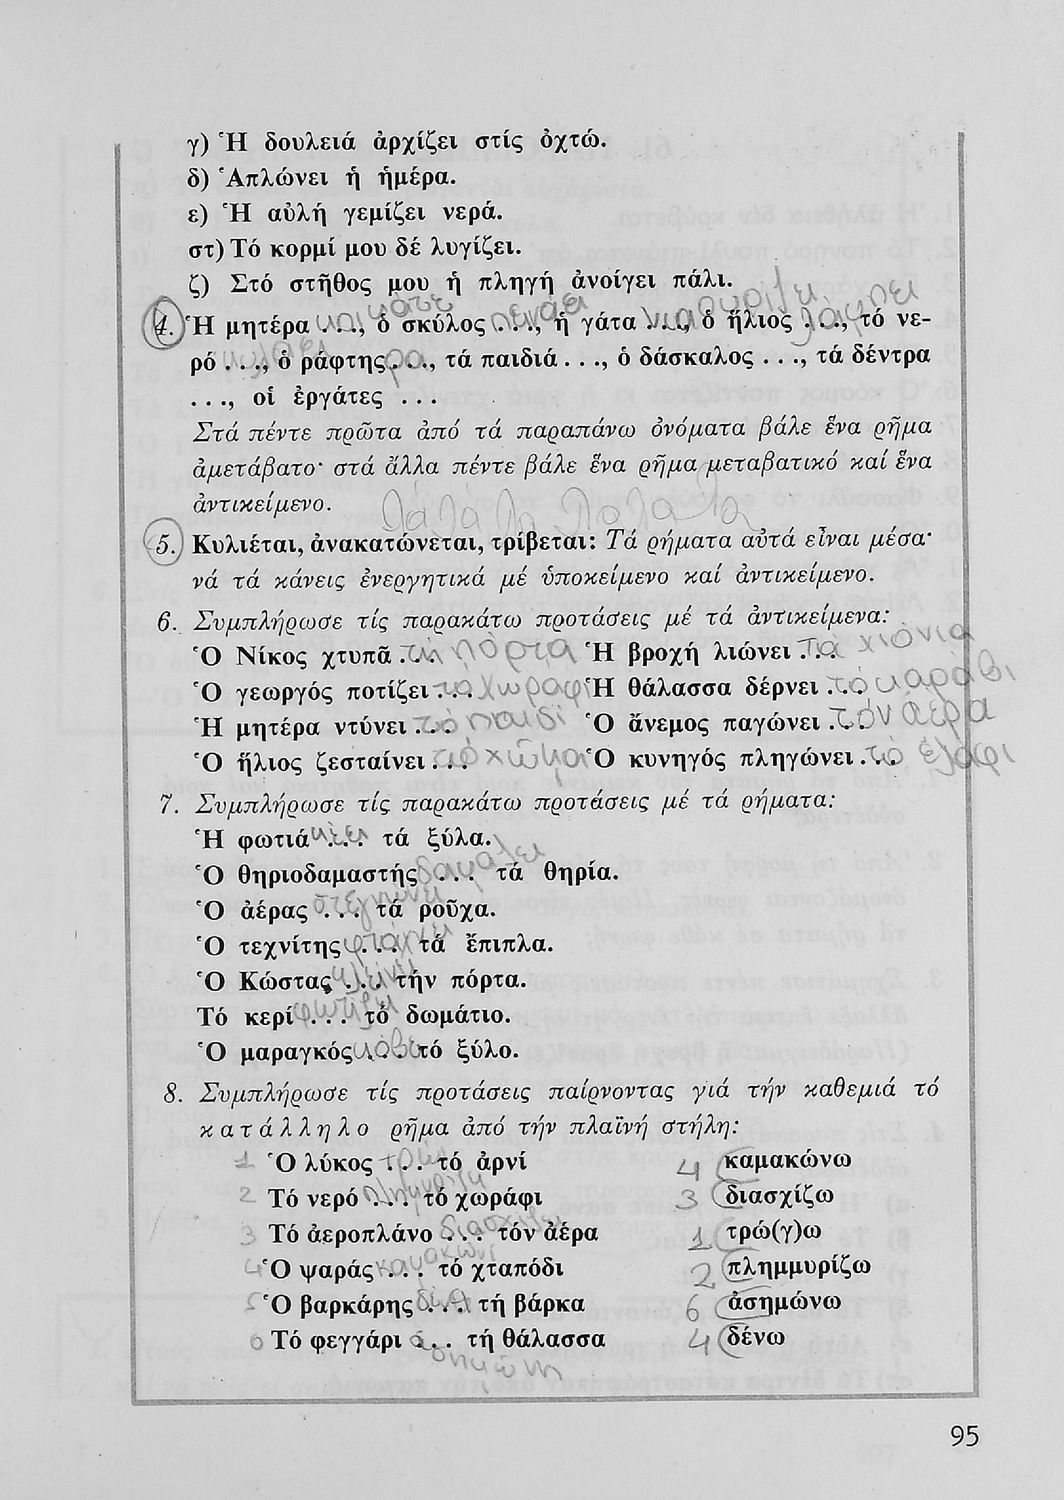 γ) Ἡ δουλειά ἀρχίζει στίς ὀχτώ.
δ) Ἁπλώνει ἡ ἡμέρα.
ε) Ἡ αὐλή γεμίζει νερά.
στ) Τό κορμί μου δέ λυγίζει.
ζ) Στό στῆθος μου ἡ πληγή ἀνοίγει πάλι.
4. Ἡ μητέρα . . ., ὁ σκύλος . . ., ἡ γάτα . . ., ὁ ἥλιος . . ., τό νε-
ρό . . ., ὁ ράφτης . . ., τά παιδιά . . ., ὁ δάσκαλος . . ., τά δέντρα
. . ., οἱ ἐργάτες . . .
Στά πέντε πρῶτα ἀπό τά παραπάνω ὀνόματα βάλε ἕνα ρῆμα
ἀμετάβατο· στά ἄλλα πέντε βάλε ἕνα ρῆμα μεταβατικό καί ἕνα
ἀντικείμενο.
5. Κυλιέται, ἀνακατώνεται, τρίβεται: Τά ρήματα αὐτά εἶναι μέσα·
νά τά κάνεις ἐνεργητικά μέ ὑποκείμενο καί ἀντικείμενο.
6. Συμπλήρωσε τίς παρακάτω προτάσεις μέ τά ἀντικείμενα:
Ὁ Νίκος χτυπᾶ . . . τη πόρτα Ἡ βροχή λιώνει . . . τα χιόνια
Ὁ γεωργός ποτίζει . . . το χωράφι Ἡ θάλασσα δέρνει . . . τό καράβι
Ἡ μητέρα ντύνει . . . τό παιδί Ὁ ἄνεμος παγώνει . . . τόν άέρα
Ὁ ἥλιος ζεσταίνει . . . το χῶμα Ὁ κυνηγός πληγώνει . . . τό ἐλάφι
7. Συμπλήρωσε τίς παρακάτω προτάσεις μέ τά ρήματα:
Ἡ φωτιά καίει . . . τά ξύλα.
Ὁ θηριοδαμαστής δαμάζει . . . τά θηρία.
Ὁ ἀέρας στεγνώνει . . . τά ροῦχα.
Ὁ τεχνίτης φτιάχνει . . . τά ἔπιπλα.
Ὁ Κώστας κλείνει . . . τήν πόρτα.
Τό κερί φωτίζει . . . τό δωμάτιο.
Ὁ μαραγκός κόβει . . . τό ξύλο.
8. Συμπλήρωσε τίς προτάσεις παίρνοντας γιά τήν καθεμιά τό
κατάλληλο ρῆμα ἀπό τήν πλαϊνή στήλη:
1 Ὁ λύκος τρώει . . . τό ἀρνί 4 καμακώνω
2 Τό νερό πλημυρίζει . . . τό χωράφι 3 διασχίζω
3 Τό ἀεροπλάνο διασχίζει . . . τόν ἀέρα 1 τρώ(γ)ω
4 Ὁ ψαράς καμακώνει . . . τό χταπόδι 2 πλημμυρίζω
5 Ὁ βαρκάρης δένει . . . τή βάρκα 6 ἀσημώνω
6 Τό φεγγάρι ἀσημώνει . . . τή θάλασσα 4 δένω
95